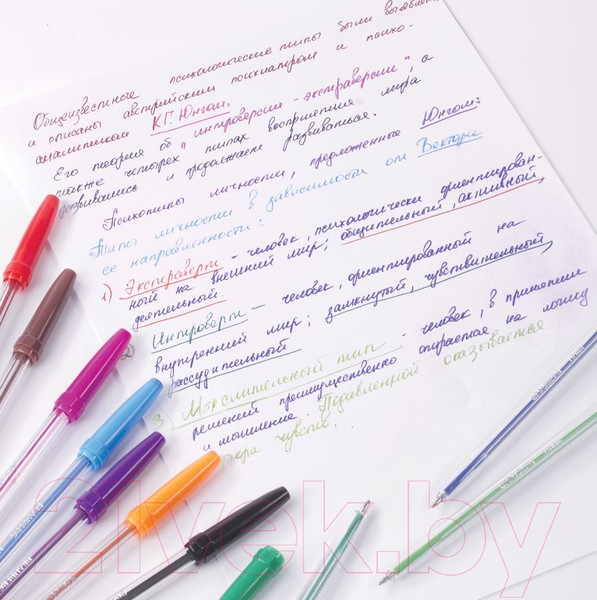 Общеизвестные психологические типы были выявлены
и описаны австрийским психиатром и психо-
аналитиком К.Г. Юнгом.
Его теория об "интроверсии - экстраверсии", а
также четырех типах восприятия мира
развивались и продолжает развиваться.
Психотипы личности, предложенные Юнгом:
Типы личности в зависимости от Вектора
её направленности:
1) Экстраверт - человек, психологически ориентирован-
ный на внешний мир; общительный, активный,
деятельный.
Интроверт - человек, ориентированный на
внутренний мир; замкнутый, чувствительный,
рассудительный
3) Мыслительный тип - человек, в принятии
решений преимущественно опирается на логику
и мышление. Подавленной оказывается
сфера чувств.
21vek.by